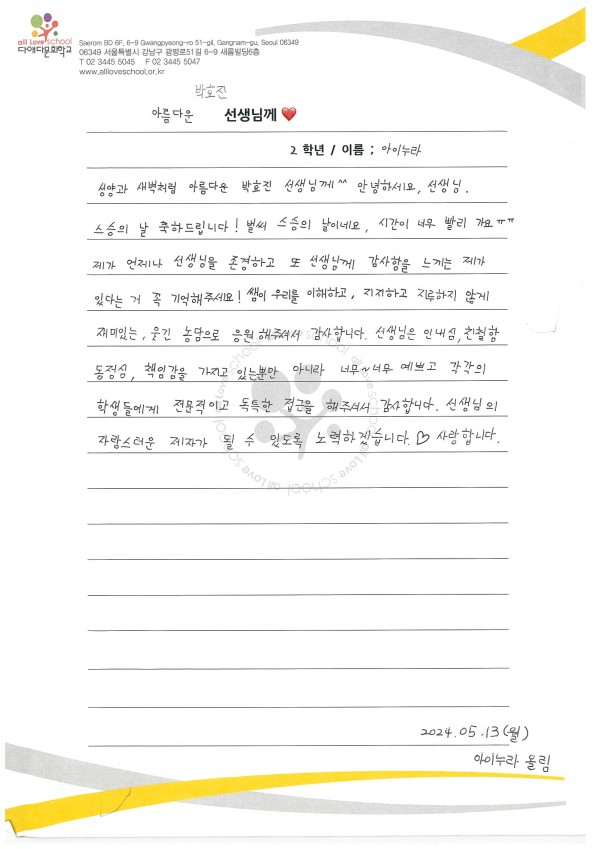 all Love school
다애다문화학교
Saerom BD 6F, 6-9 Gwangpyeong-ro 51-gil, Gangnam-gu, Seoul 06349
06349 서울특별시 강남구 광평로51길 6-9 새롬빌딩6층
T 02 3445 5045 F 02 3445 5047
www.allloveschool.or.kr
박효진
아름다운 선생님께 ❤️
2 학년 / 이름 ; 아이누라
싱양과 새벽처럼 아름다운 박효진 선생님께^^ 안녕하세요, 선생님.
스승의 날 축하드립니다! 벌써 스승의 날이네요, 시간이 너무 빨리 가요ㅠㅠ
제가 언제나 선생님을 존경하고 또 선생님께 감사함을 느끼는 제가
있다는 거 꼭 기억해주세요! 쌤이 우리를 이해하고, 지지하고 지루하지 않게
재미있는, 웃긴 농담으로 응원해주셔서 감사합니다. 선생님은 인내심, 친철함
동정심, 책임감을 가지고 있는뿐만 아니라 너무~너무 예쁘고 각각의
학생들에게 전문적이고 독특한 접근을 해주셔서 감사합니다. 선생님의
자랑스러운 제자가 될 수 있도록 노력하겠습니다. ♡ 사랑합니다.
all Love school all Love school all Love school all Love school
2024.05.13(월)
아이누라 올림